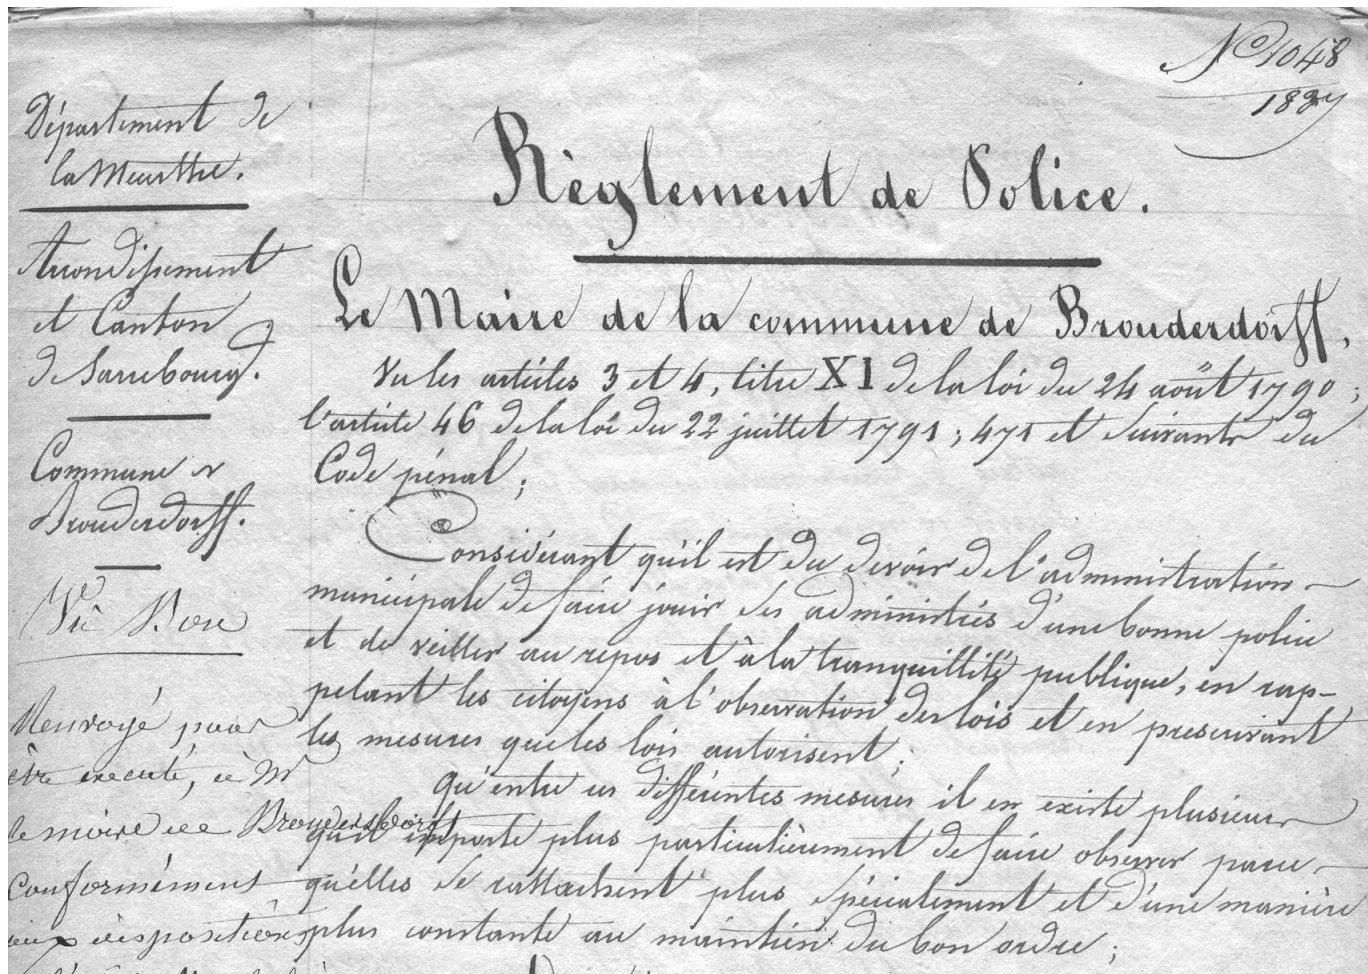 No 1048
Département de
la Meurthe.
Arrondissement
et Canton
de Sarrebourg.
Commune de
Brouderdorff.
Vu Bon
Renvoyé pour
être exécuté, à Mr
le maire de Brouderdorff
conformément
aux dispositions
Règlement de Police.
Le Maire de la commune de Brouderdorff,
Vu les articles 3 et 4, titre XI de la loi du 24 août 1790;
l'article 46 de la loi du 22 juillet 1791; 471 et suivants du
Code pénal;
Considérant qu'il est du devoir de l'administration
municipale de faire jouir ses administrés d'une bonne police
et de veiller au repos et à la tranquillité publique, en rap-
pelant les citoyens à l'observation des lois et en prescrivant
les mesures que les lois autorisent;
qu'entre ces différentes mesures il en existe plusieurs
qu'il importe plus particulièrement de faire observer parce
qu'elles se rattachent plus spécialement et d'une manière
plus constante au maintien du bon ordre;